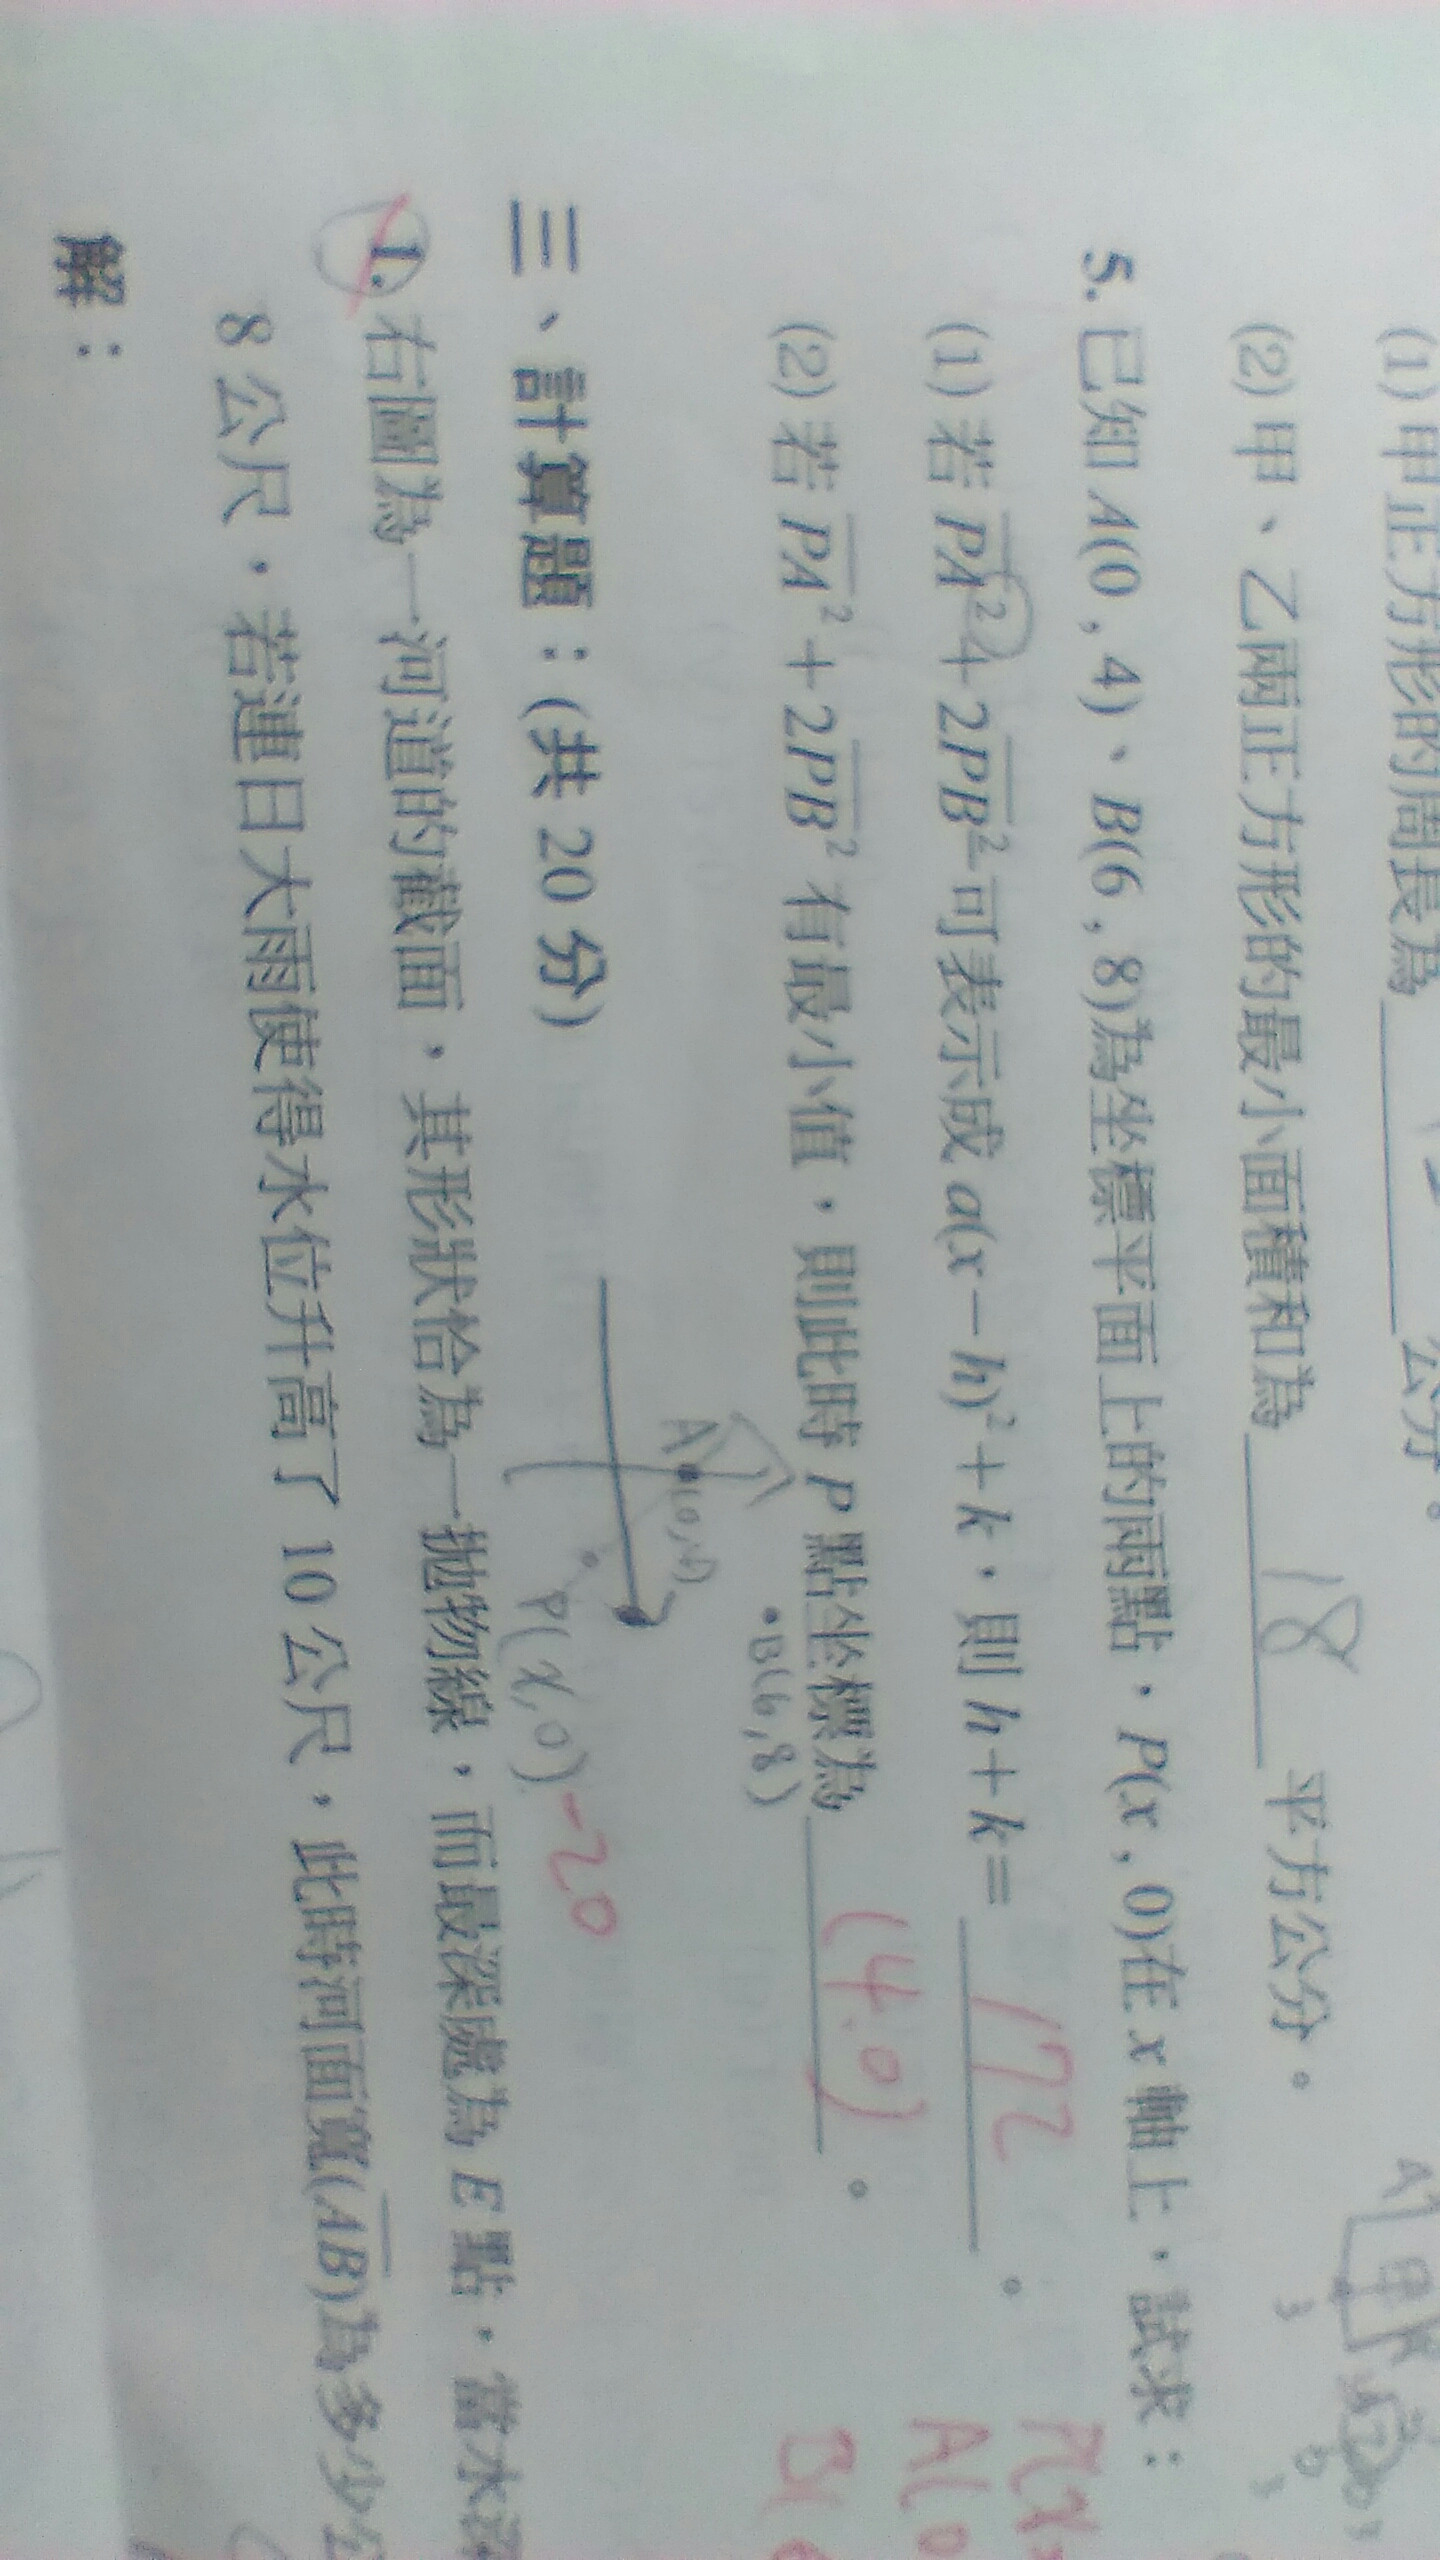 (1) 甲正方形的周長為 公分。
(2) 甲、乙兩正方形的最小面積和為 18 平方公分。
5. 已知 A(0 , 4)、B(6 , 8)為坐標平面上的兩點，P(x , 0)在 x 軸上，試求：
(1) 若 PA²＋2PB²可表示成 a(x－h)²＋k，則 h＋k＝ 172 。
(2) 若 PA²＋2PB² 有最小值，則此時 P 點坐標為 (4.0) 。
A (0,4)
B(6,8)
P(x,0)
-20
三、計算題：(共 20 分)
1. 右圖為一河道的截面，其形狀恰為一拋物線，而最深處為 E 點，當水深
8 公尺，若連日大雨使得水位升高了 10 公尺，此時河面寬(AB)為多少公
解：